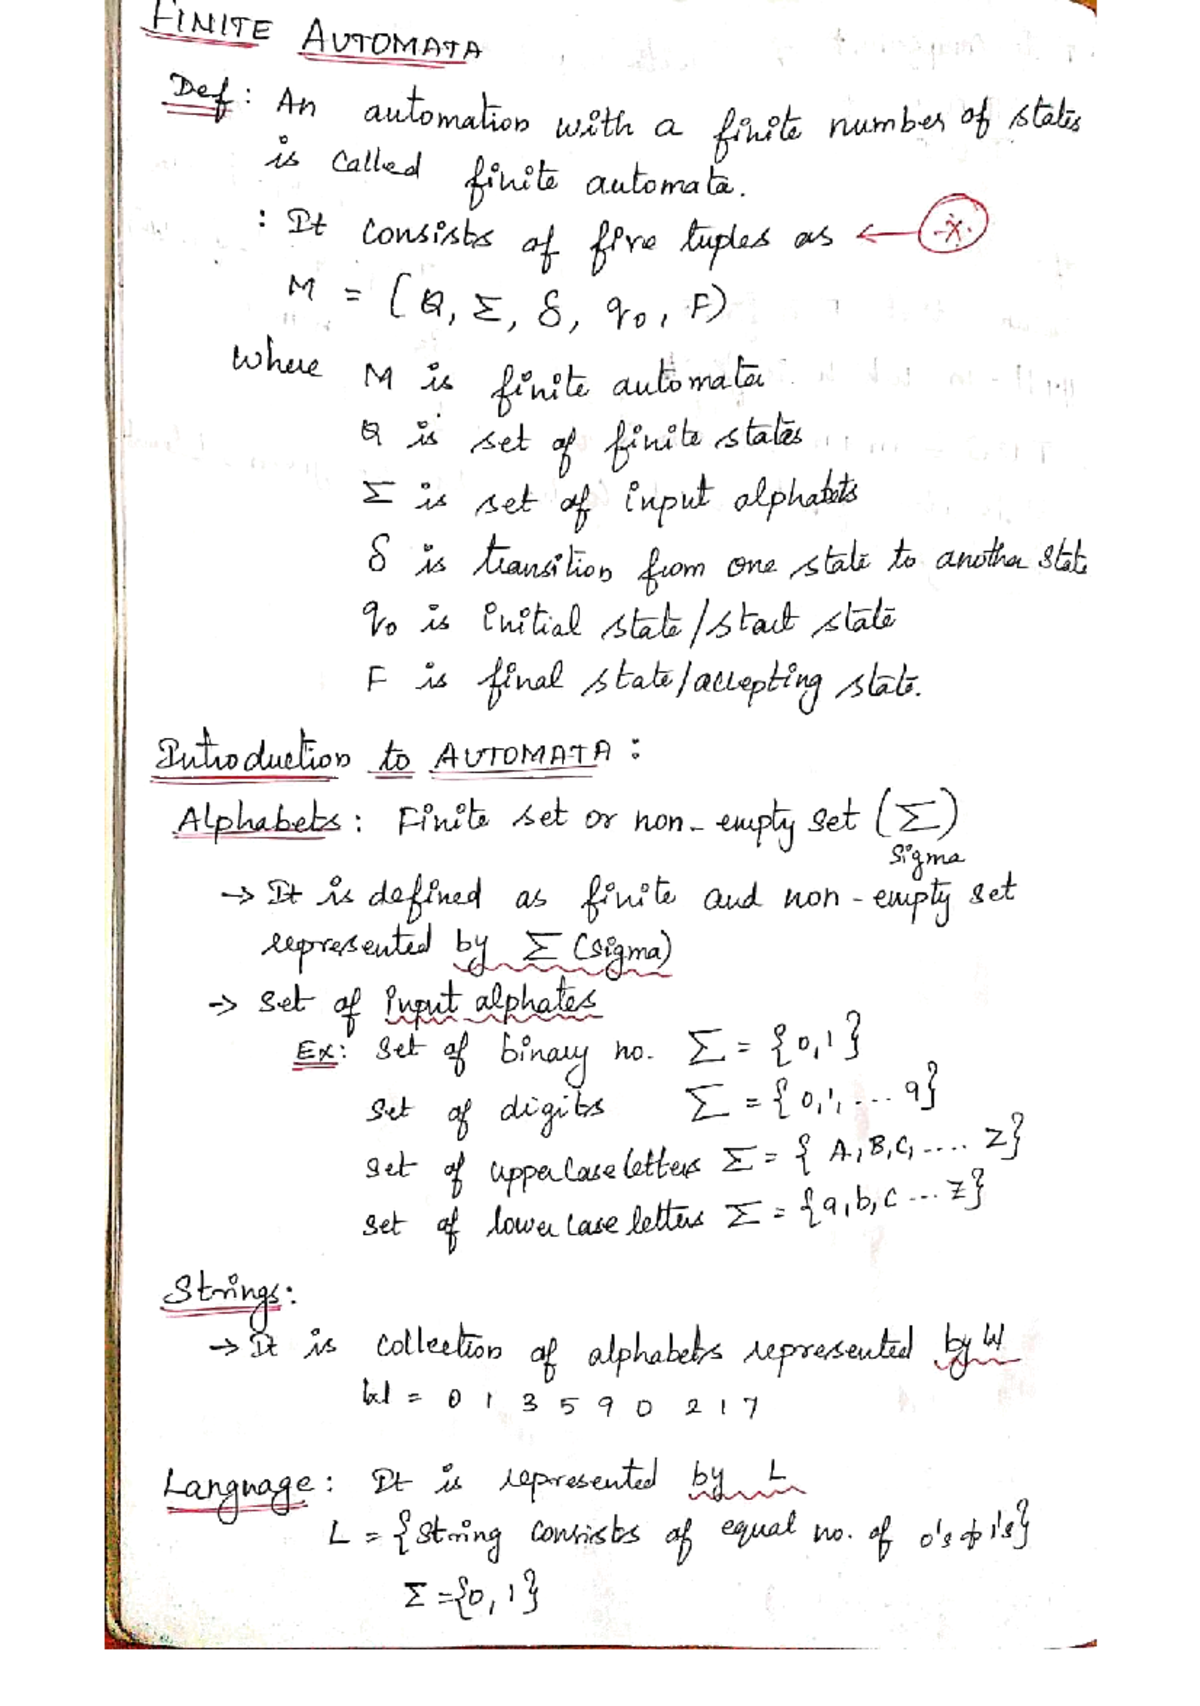 FINITE AUTOMATA
Def: An automation with a finite number of states
is called finite automata.
: It consists of five tuples as ← *
M = (Q, Σ, δ, q0, F)
where M is finite automata
Q is set of finite states
Σ is set of input alphabets
δ is transition from one state to another state
q0 is initial state/start state
F is final state/accepting state.
Introduction to AUTOMATA:
Alphabets: Finite set or non-empty set (Σ)
Sigma
→ It is defined as finite and non-empty set
represented by Σ (sigma)
→ set of input alphates
Ex: set of binary no. Σ = {0,1}
set of digits Σ = {0,1, ... 9}
set of uppercase letters Σ = {A,B,C, .... Z}
set of lower case letters Σ = {a,b,c ... z}
Strings:
→ It is collection of alphabets represented by W
W = 0 1 3 5 9 0 2 1 7
Language: It is represented by L
L = {string consists of equal no. of 0's & 1's}
Σ = {0, 1}